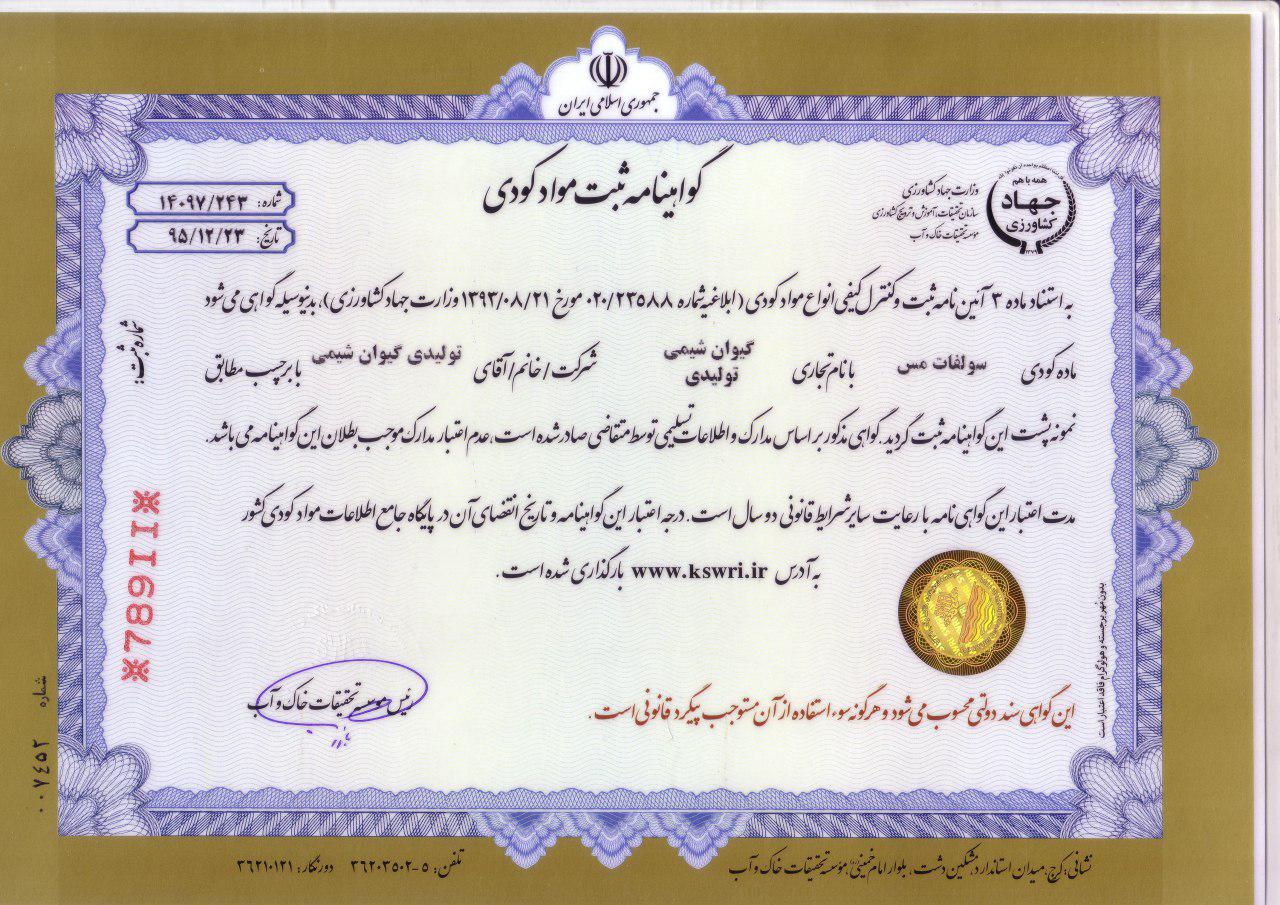 جمهوری اسلامی ایران
همه با هم
جهاد
کشاورزی
وزارت جهاد کشاورزی
سازمان تحقیقات، آموزش و ترویج کشاورزی
مؤسسه تحقیقات خاک و آب
گواهینامه ثبت مواد کودی
شماره: ۱۴۰۹۷/۲۴۳
تاریخ: ۹۵/۱۲/۲۳
به استناد ماده ۳ آئین نامه ثبت و کنترل کیفی انواع مواد کودی (ابلاغیه شماره ۰۲۰/۲۳۵۸۸ مورخ ۱۳۹۳/۰۸/۲۱ وزارت جهاد کشاورزی)، بدینوسیله گواهی می شود
ماده کودی سولفات مس با نام تجاری گیوان شیمی تولیدی شرکت / خانم / آقای تولیدی گیوان شیمی با برچسب مطابق
نمونه پشت این گواهینامه ثبت گردید. گواهی مذکور بر اساس مدارک و اطلاعات تسلیمی توسط متقاضی صادر شده است، عدم اعتبار مدارک موجب بطلان این گواهینامه می باشد.
مدت اعتبار این گواهی نامه با رعایت سایر شرایط قانونی دو سال است. درجه اعتبار این گواهینامه و تاریخ انقضای آن در پایگاه جامع اطلاعات مواد کودی کشور
به آدرس www.kswri.ir بارگذاری شده است.
شماره ثبت:
※789II※
رئیس موسسه تحقیقات خاک و آب
این گواهی سند دولتی محسوب می شود و هرگونه سوء استفاده از آن مستوجب پیگرد قانونی است.
بدون مهر برجسته و هولوگرام فاقد اعتبار است
شماره ۰۰۷٤٥٢
نشانی: کرج، میدان استاندارد، مشکین دشت، بلوار امام خمینی(ره)، مؤسسه تحقیقات خاک و آب
تلفن: ۵-۳۶۲۰۳۵۰۲ دورنگار: ۳۶۲۱۰۱۲۱